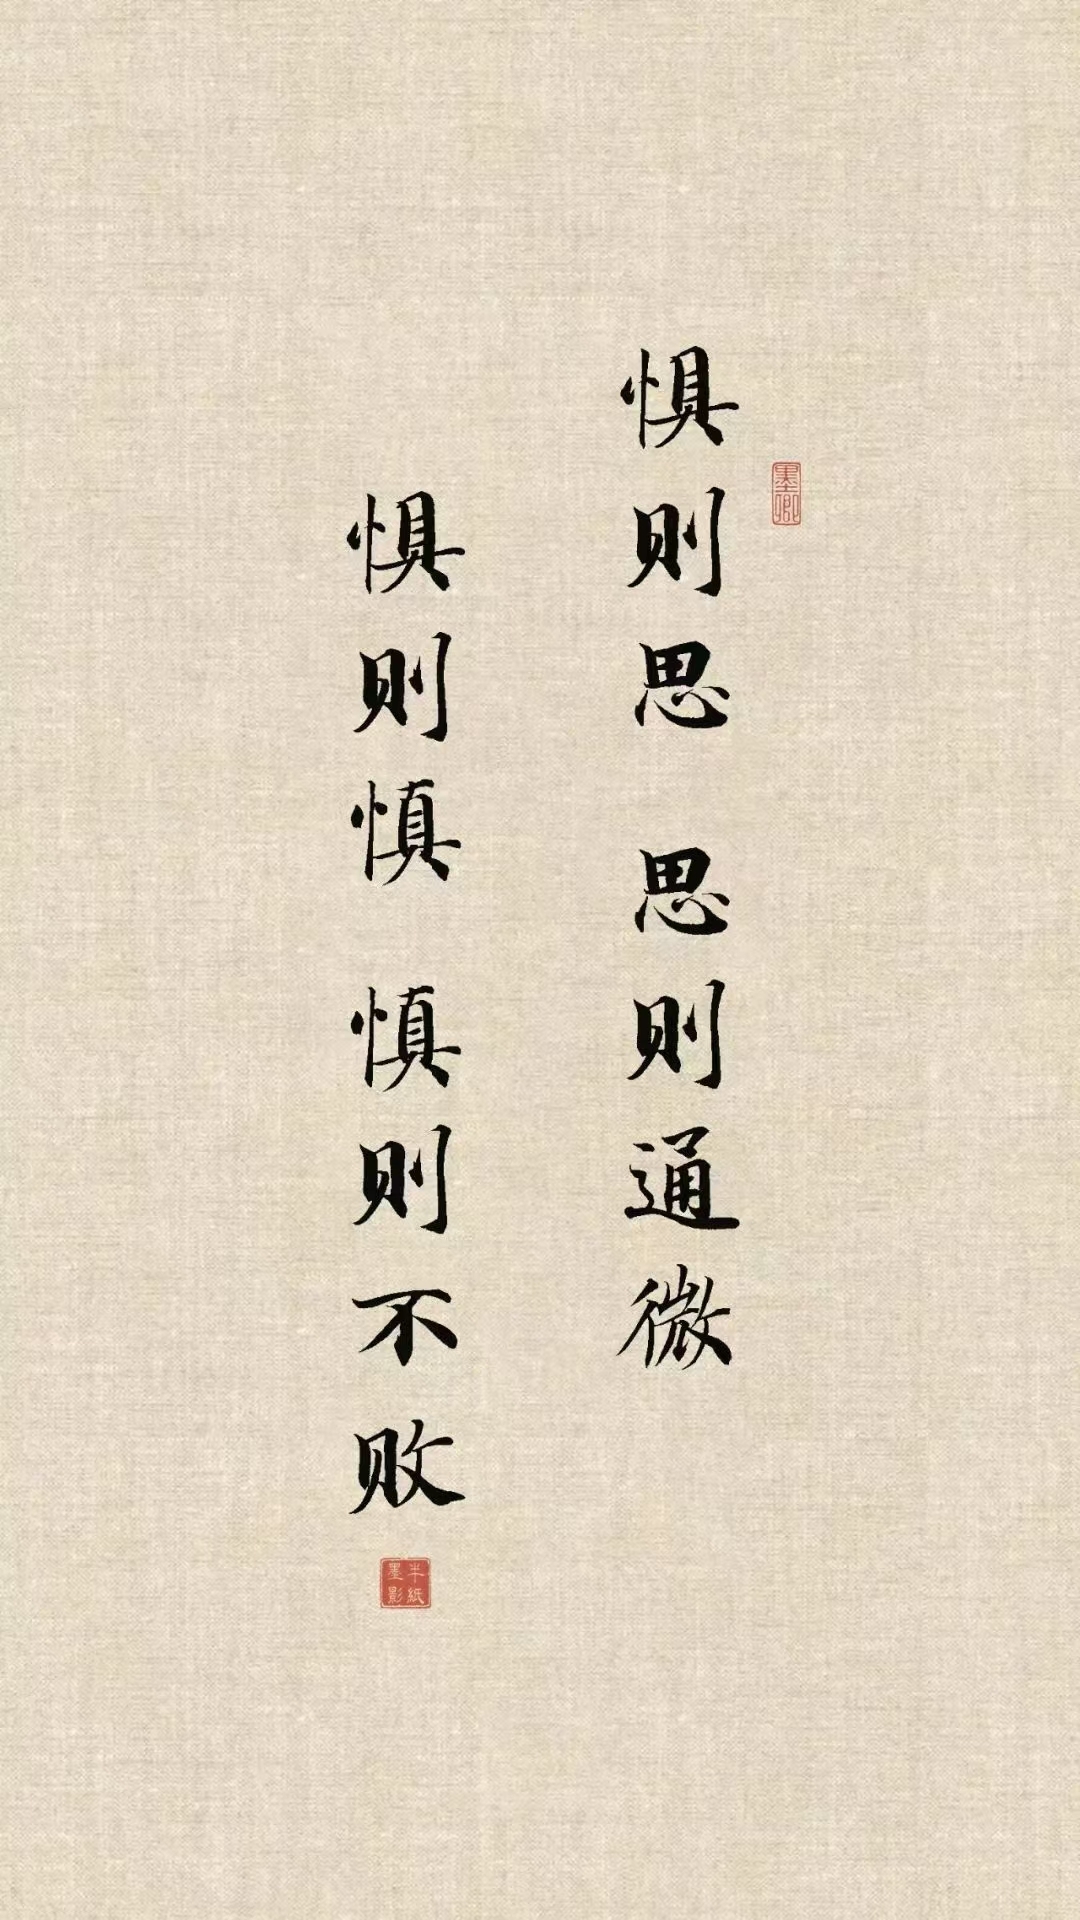 惧则思 思则通微
惧则慎 慎则不败
墨卿
半纸墨影